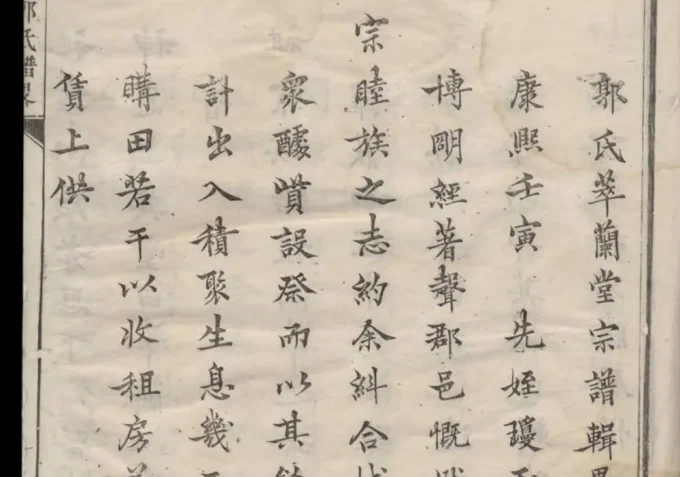 郭氏萃蘭堂宗譜輯畧
康熙壬寅 先姪瓊
博明經著聲郡邑慨
宗睦族之志約余糾合
衆醵貲設祭而以其餘
計出入積聚生息幾
購田若干以收租房
賃上供
郭氏譜畧